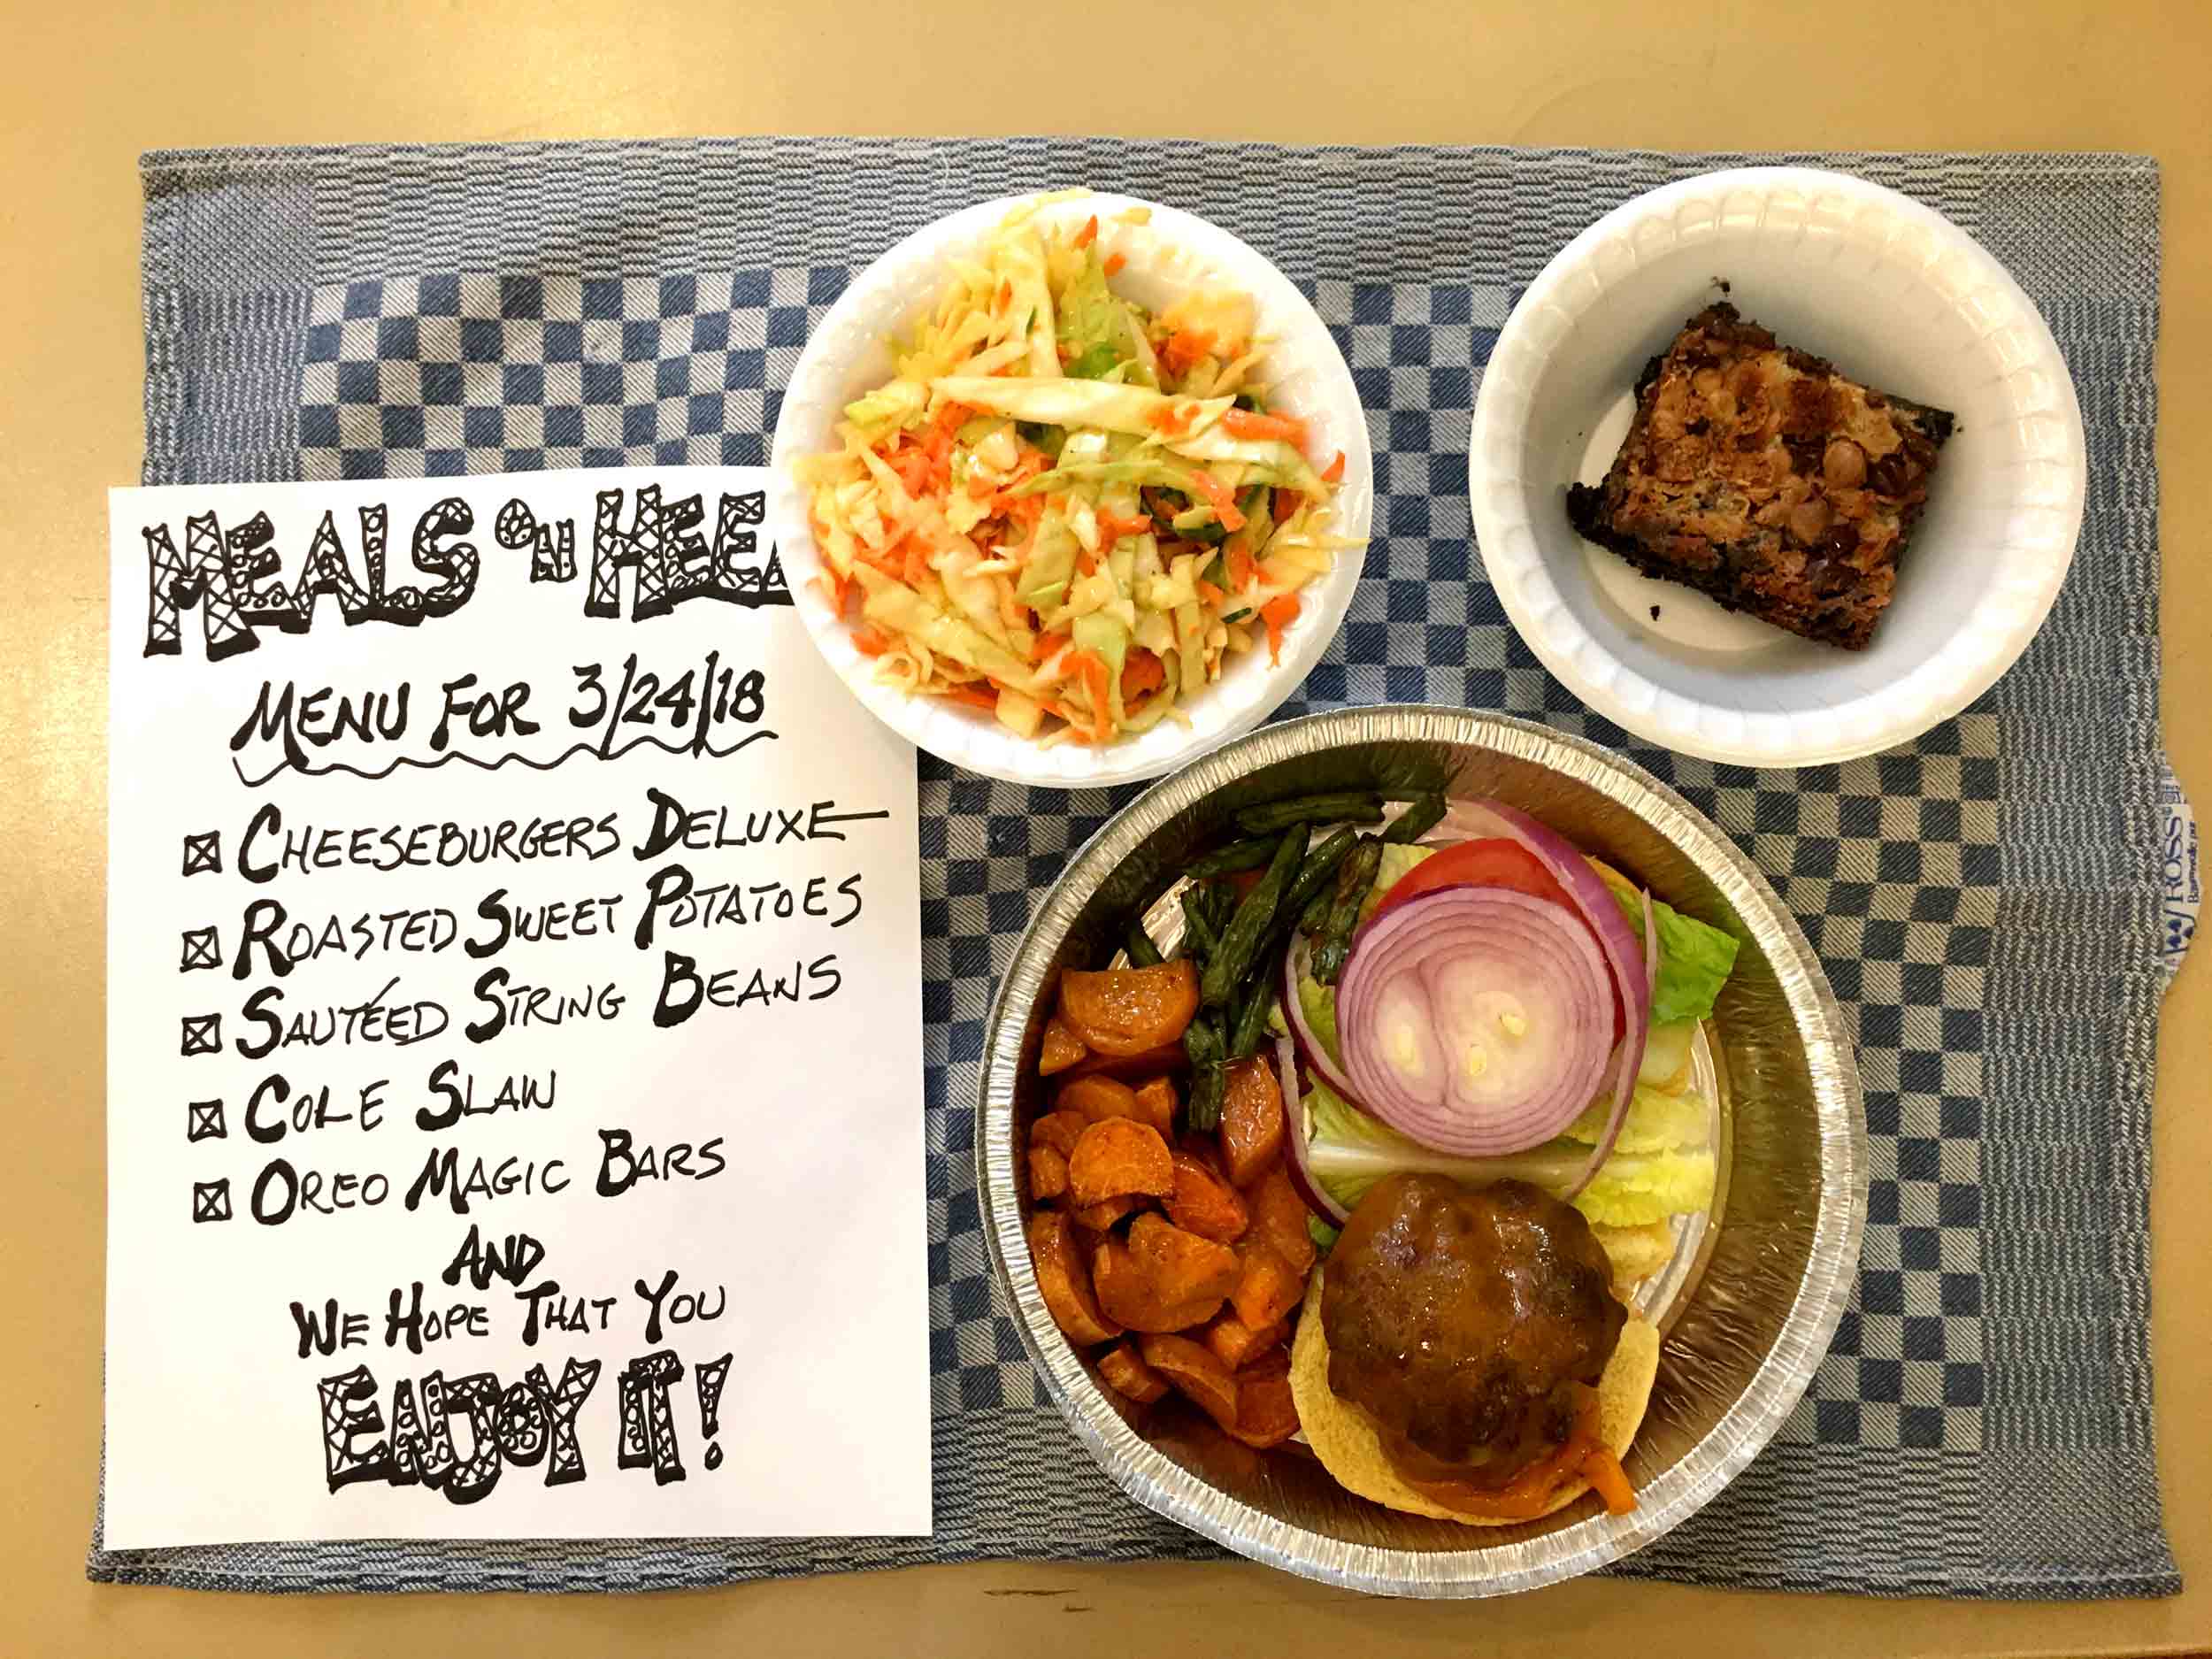 MEALS ON
MENU FOR 3/24/18
☒ CHEESEBURGERS DELUXE
☒ ROASTED SWEET POTATOES
☒ SAUTÉED STRING BEANS
☒ COLE SLAW
☒ OREO MAGIC BARS
AND
WE HOPE THAT YOU
ENJOY IT!
ROSS